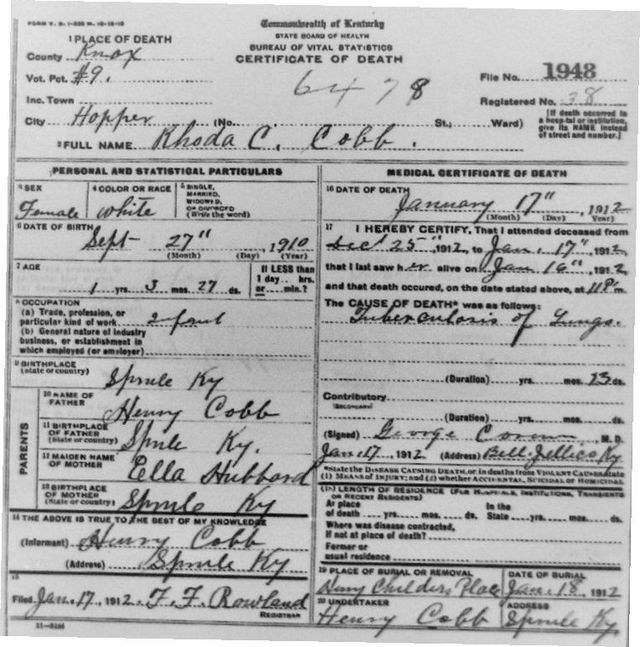 FORM V. S. 1-
Commonwealth of Kentucky
STATE BOARD OF HEALTH
BUREAU OF VITAL STATISTICS
CERTIFICATE OF DEATH
1 PLACE OF DEATH
County Knox
Vot. Pct. #9.
Inc. Town
City Hopper (No. St.; Ward)
6478
File No. 1948
Registered No. 38
[If death occurred in a hospital or institution, give its NAME instead of street and number.]
2 FULL NAME Rhoda C. Cobb.
PERSONAL AND STATISTICAL PARTICULARS
3 SEX
Female
4 COLOR OR RACE
White
5 SINGLE, MARRIED, WIDOWED, OR DIVORCED (Write the word)
6 DATE OF BIRTH
Sept 27", 1910
(Month) (Day) (Year)
7 AGE
1 yrs. 3 mos. 27 ds.
If LESS than 1 day... hrs. or.... min.?
8 OCCUPATION
(a) Trade, profession, or particular kind of work Infant
(b) General nature of industry business, or establishment in which employed (or employer)
9 BIRTHPLACE
(state or country) Sprule Ky
PARENTS
10 NAME OF FATHER Henry Cobb
11 BIRTHPLACE OF FATHER (State or country) Sprule Ky.
12 MAIDEN NAME OF MOTHER Ella Hubbard
13 BIRTHPLACE OF MOTHER (State or country) Sprule Ky
14 THE ABOVE IS TRUE TO THE BEST OF MY KNOWLEDGE
(Informant) Henry Cobb
(Address) Sprule Ky
15
Filed Jan. 17, 1912. F. F. Rowland
REGISTRAR
MEDICAL CERTIFICATE OF DEATH
16 DATE OF DEATH
January 17", 1912
(Month) (Day) (Year)
17 I HEREBY CERTIFY, That I attended deceased from
Dec 25", 1912, to Jan. 17", 1912,
that I last saw her alive on Jan 16", 1912
and that death occured, on the date stated above, at 11 P.m.
The CAUSE OF DEATH* was as follows:
Tuberculosis of Lungs.
(Duration) yrs. mos. 23 ds.
Contributory
(SECONDARY)
(Duration) yrs. mos. ds.
(Signed) George M. D.
Jan. 17, 1912 (Address) Bell-Jellico Ky
*State the DISEASE CAUSING DEATH, or in deaths from VIOLENT CAUSES state
(1) MEANS OF INJURY; and (2) whether ACCIDENTAL, SUICIDAL or HOMICIDAL
18 LENGTH OF RESIDENCE (FOR HOSPITALS, INSTITUTIONS, TRANSIENTS OR RECENT RESIDENTS)
At place of death yrs. mos. ds. In the State yrs. mos. ds.
Where was disease contracted,
if not at place of death?
Former or
usual residence
19 PLACE OF BURIAL OR REMOVAL
Henry Childers Place
DATE OF BURIAL
Jan. 18, 1912
20 UNDERTAKER
Henry Cobb
ADDRESS
Sprule Ky